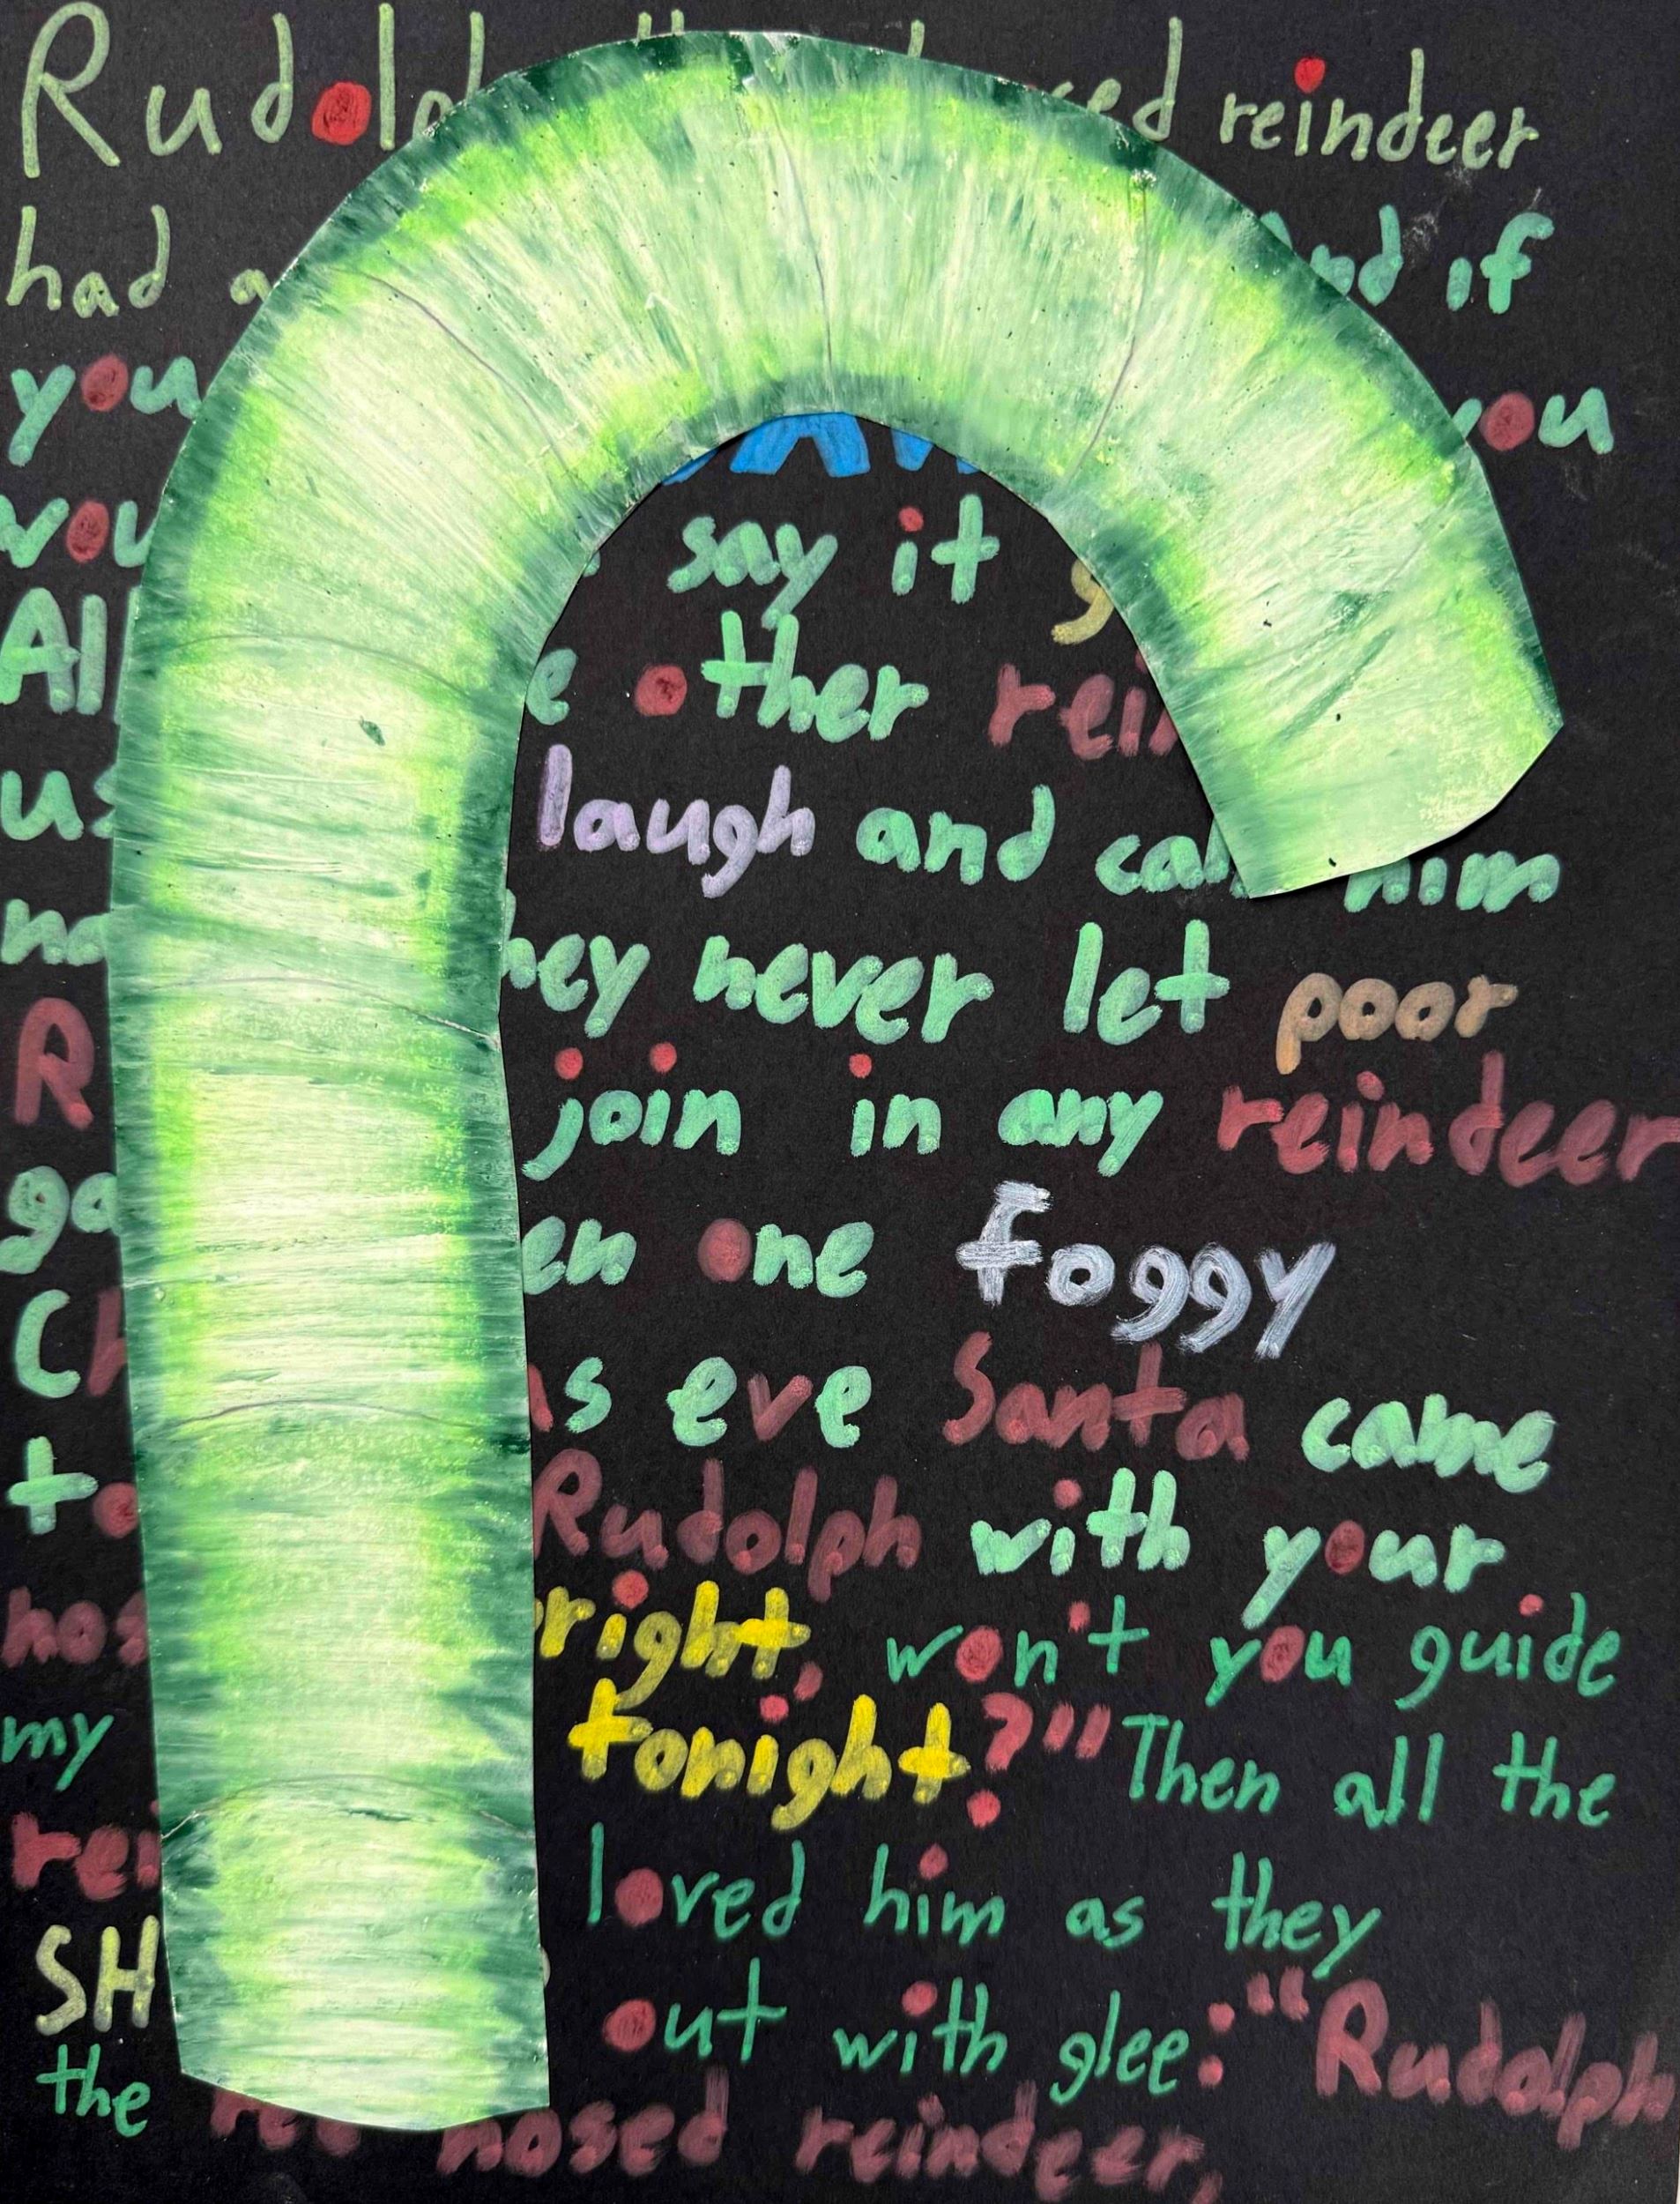 Rudol reindeer
had a nd if
you you
wou say it g
All e other rein
us laugh and call him
no hey never let poor
R join in any reindeer
ga en one foggy
Ch as eve Santa came
to Rudolph with your
nos right, won't you guide
my tonight?" Then all the
rei loved him as they
SH out with glee: "Rudolph
the red nosed reindeer,